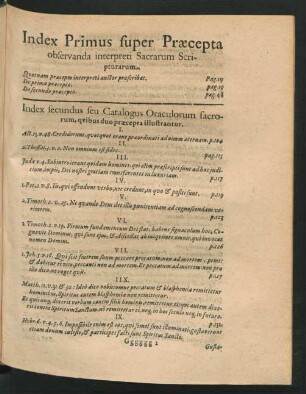 Index Primus super Præcepta
observanda interpreti Sacrarum Scri-
pturarum.
Quatnam præcepta interpreti auctor præscribat. Pag.19
De primo præcepto. pag.19
De secundo præcepto. pag.48
Index secundus seu Catalogus Oraculorum sacro-
rum, qvibus duo præcepta illustrantur.
I.
Act.13.v.48. Crediderunt, quotquot erant præordinati ad vitam æternam. p.104
II.
2. Thess. 3. v. 2. Non omnium est fides. pag.113
III.
Judæ v.4. Subintroierunt quidam homines, qui olim præscripti sunt ad hoc judi-
cium, impii, Dei nostri gratiam transferentes in luxuriam. p.117
IV.
1. Pet. 2. v. 8. Iis, qui offendunt verbo, nec credunt, in quo & positi sunt. p.119
V.
2. Timoth. 2. v. 25. Ne quando Deus det illis pœnitentiam ad cognoscendam ve-
ritatem. p.122
VI.
2. Timoth. 2. v.19. Firmum fundamentum Dei stat, habens signaculum hoc,
Cognovit Dominus, qui sunt ejus, & discedat ab iniquitate omnis, qui invocat
nomen Domini.
VII.
1. Joh. 5. v.16. Qui scit fratrem suum peccare peccatum non ad mortem, petat;
& dabitur ei vita, peccanti non ad mortem. Est peccatum ad mortem: non pro
illo dico ut roget quis.
IIX.
Matth. 12. v. 31. & 32: Ideo dico vobis: omne peccatum & blasphemia remittetur
hominibus, Spiritus autem blasphemia non remittetur.
Et quicunq; dixerit verbum contra filium hominis, remittetur ei: qui autem di-
xerit contra Spiritum Sanctum, non remittetur ei, neq; in hoc seculo neq; in futuro.
IX.
Hebr. 6. v. 4. 5. 6. Impossibile enim est eos, qui semel sunt illuminati, gustaverunt
etiam donum cæleste, & participes facti sunt Spiritus Sancti,
Gustav-